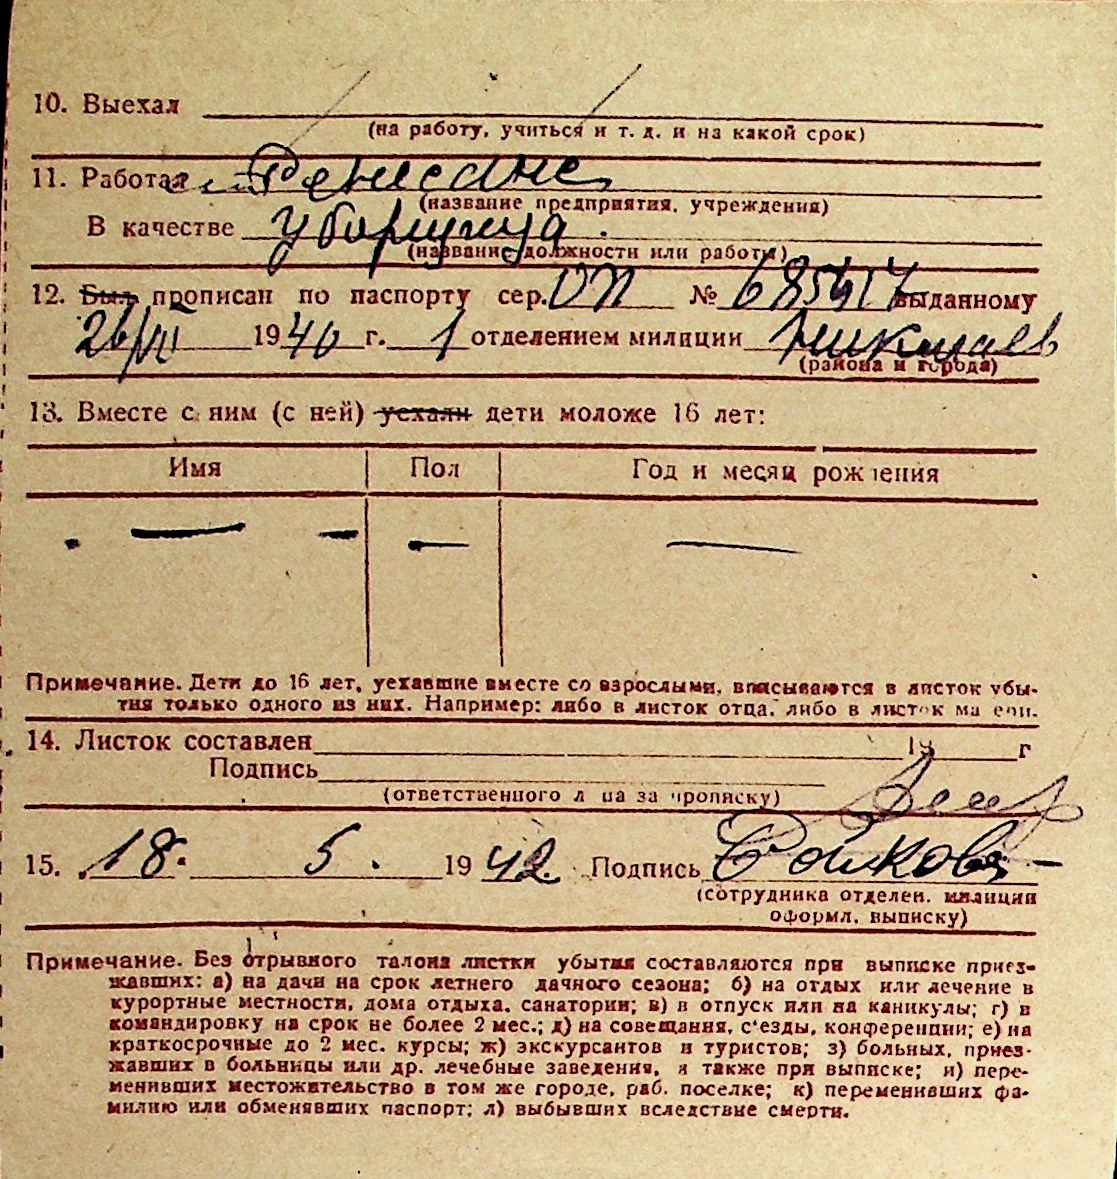 10. Выехал
(на работу, учиться и т. д. и на какой срок)
11. Работал Ренесанс
(название предприятия, учреждения)
В качестве уборщица.
(название должности или работы)
12. Был прописан по паспорту сер. ОП № 685417 выданному
26/VII 1940 г. 1 отделением милиции Николаев
(района и города)
13. Вместе с ним (с ней) уехали дети моложе 16 лет:
Имя Пол Год и месяц рождения
Примечание. Дети до 16 лет, уехавшие вместе со взрослыми, вписываются в листок убы-
тия только одного из них. Например: либо в листок отца, либо в листок ма ери.
14. Листок составлен 19 г
Подпись
(ответственного л ца за прописку)
15. 18. 5. 1942. Подпись
(сотрудника отделен. милиции
оформл. выписку)
Примечание. Без отрывного талона листки убытия составляются при выписке приез-
жавших: а) на дачи на срок летнего дачного сезона; б) на отдых или лечение в
курортные местности, дома отдыха, санатории; в) в отпуск или на каникулы; г) в
командировку на срок не более 2 мес.; д) на совещания, с'езды, конференции; е) на
краткосрочные до 2 мес. курсы; ж) экскурсантов и туристов; з) больных, приез-
жавших в больницы или др. лечебные заведения, а также при выписке; и) пере-
менивших местожительство в том же городе, раб. поселке; к) переменивших фа-
милию или обменявших паспорт; л) выбывших вследствие смерти.